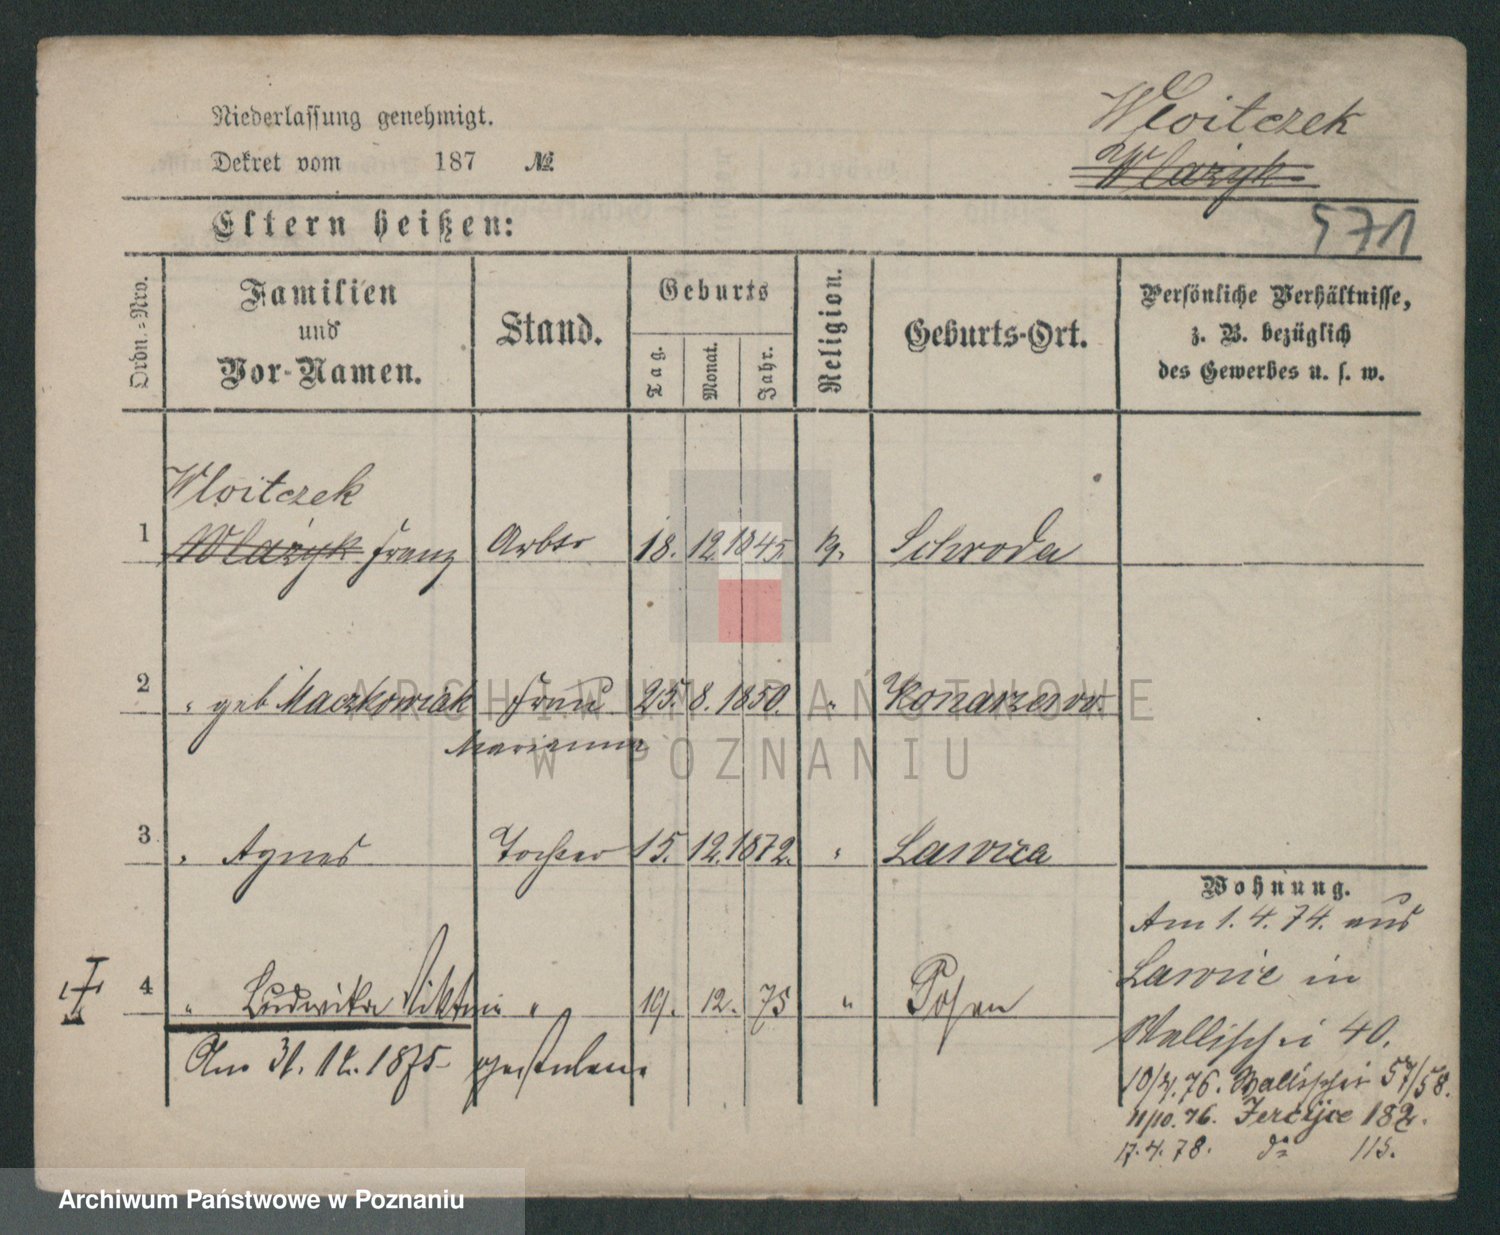 Niederlassung genehmigt.
Dekret vom 187 №
Wloitczek
Wlazyk
571
Eltern heißen:
Ordn.-Nro.
Familien
und
Vor-Namen.
Stand.
Geburts
Tag.
Monat.
Jahr.
Religion.
Geburts-Ort.
Persönliche Verhältnisse,
z. B. bezüglich
des Gewerbes u. s. w.
Wloitczek
1 Wlazyk Franz Arbtr 18. 12. 1845. Schroda
2 " geb Maczkowiak Frau 25. 8. 1850. " Konarzewo.
Marianna
3 " Agnes Tochter 15. 12. 1872. " Lawica
4 " Ludwika Viktoria " 19. 12. 75 " Posen
Am 31. 12. 1875 gestorben.
Wohnung.
Am 1. 4. 74. aus
Lawice in
Wallischei 40.
10/4. 76. Wallischei 57/58.
11/10. 76. Jerzyce 182.
17. 4. 78. do 115.
ARCHIWUM PAŃSTWOWE
W POZNANIU
Archiwum Państwowe w Poznaniu